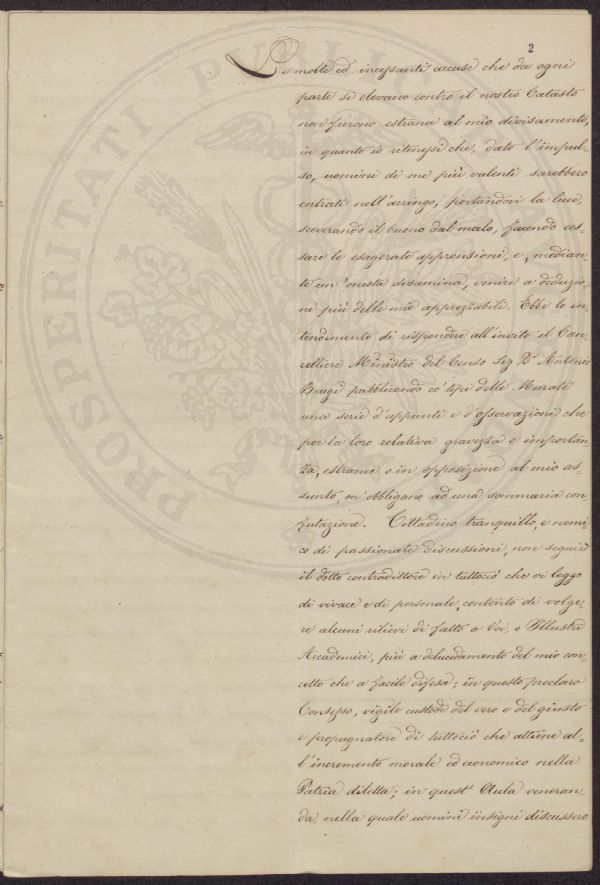 2
Le molte ed incessanti accuse che da ogni
parte si elevano contro il nostro Catasto
non furono estranee al mio divisamento,
in quanto io ritenessi che, dato l'impul=
so, uomini di me più valenti sarebbero
entrati nell'arringo, portandovi la luce,
sceverando il buono dal malo, facendo ces=
sare le esagerate apprensioni, e, median=
te un'onesta disamina, venire a deduzio=
ni più delle mie apprezzabili. Ebbe lo in=
tendimento di rispondere all'invito il Can=
celliere Ministro del Censo Sig. Dr. Antonio
Brugi pubblicando co' tipi delle Murate
una serie d'appunti e d'osservazione che
per la loro relativa gravezza e importan=
za, estranee o in opposizione al mio as=
sunto, m'obbligano ad una sommaria con=
futazione. Cittadino tranquillo, e nemi=
co di passionate discussioni, non seguirò
il dotto contradittore in tuttociò che vi leggo
di vivace e di personale, contento di volge=
re alcuni rilievi di fatto a Voi, o Illustri
Accademici, più a delucidamento del mio con=
cetto che a facile difesa; in questo preclaro
Consesso, vigile custode del vero e del giusto
e propugnatore di tuttociò che attiene al=
l'incremento morale ed economico nella
Patria diletta; in quest'Aula veneran=
da, nella quale uomini insigni discussero
PROSPERITATI PUBLI